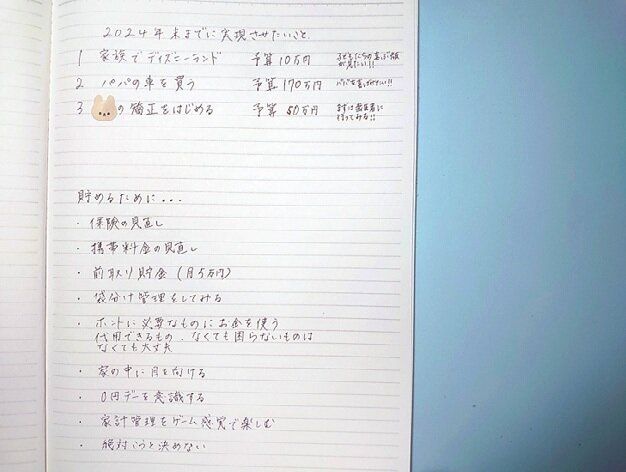 2024年末までに実現させたいこと
1 家族でディズニーランド 予算10万円 子どもたちの喜ぶ顔が見たい!!
2 パパの車を買う 予算170万円
3 の矯正をはじめる 予算50万円 まずは歯医者に行ってみる!!
貯めるために...
・保険の見直し
・携帯料金の見直し
・前取り貯金(月5万円)
・袋分け管理をしてみる
・ホントに必要なものにお金を使う
代用できるもの、なくても困らないものは
なくても大丈夫
・家の中に目を向ける
・0円デーを意識する
・家計管理をゲーム感覚で楽しむ
・絶対こうと決めない